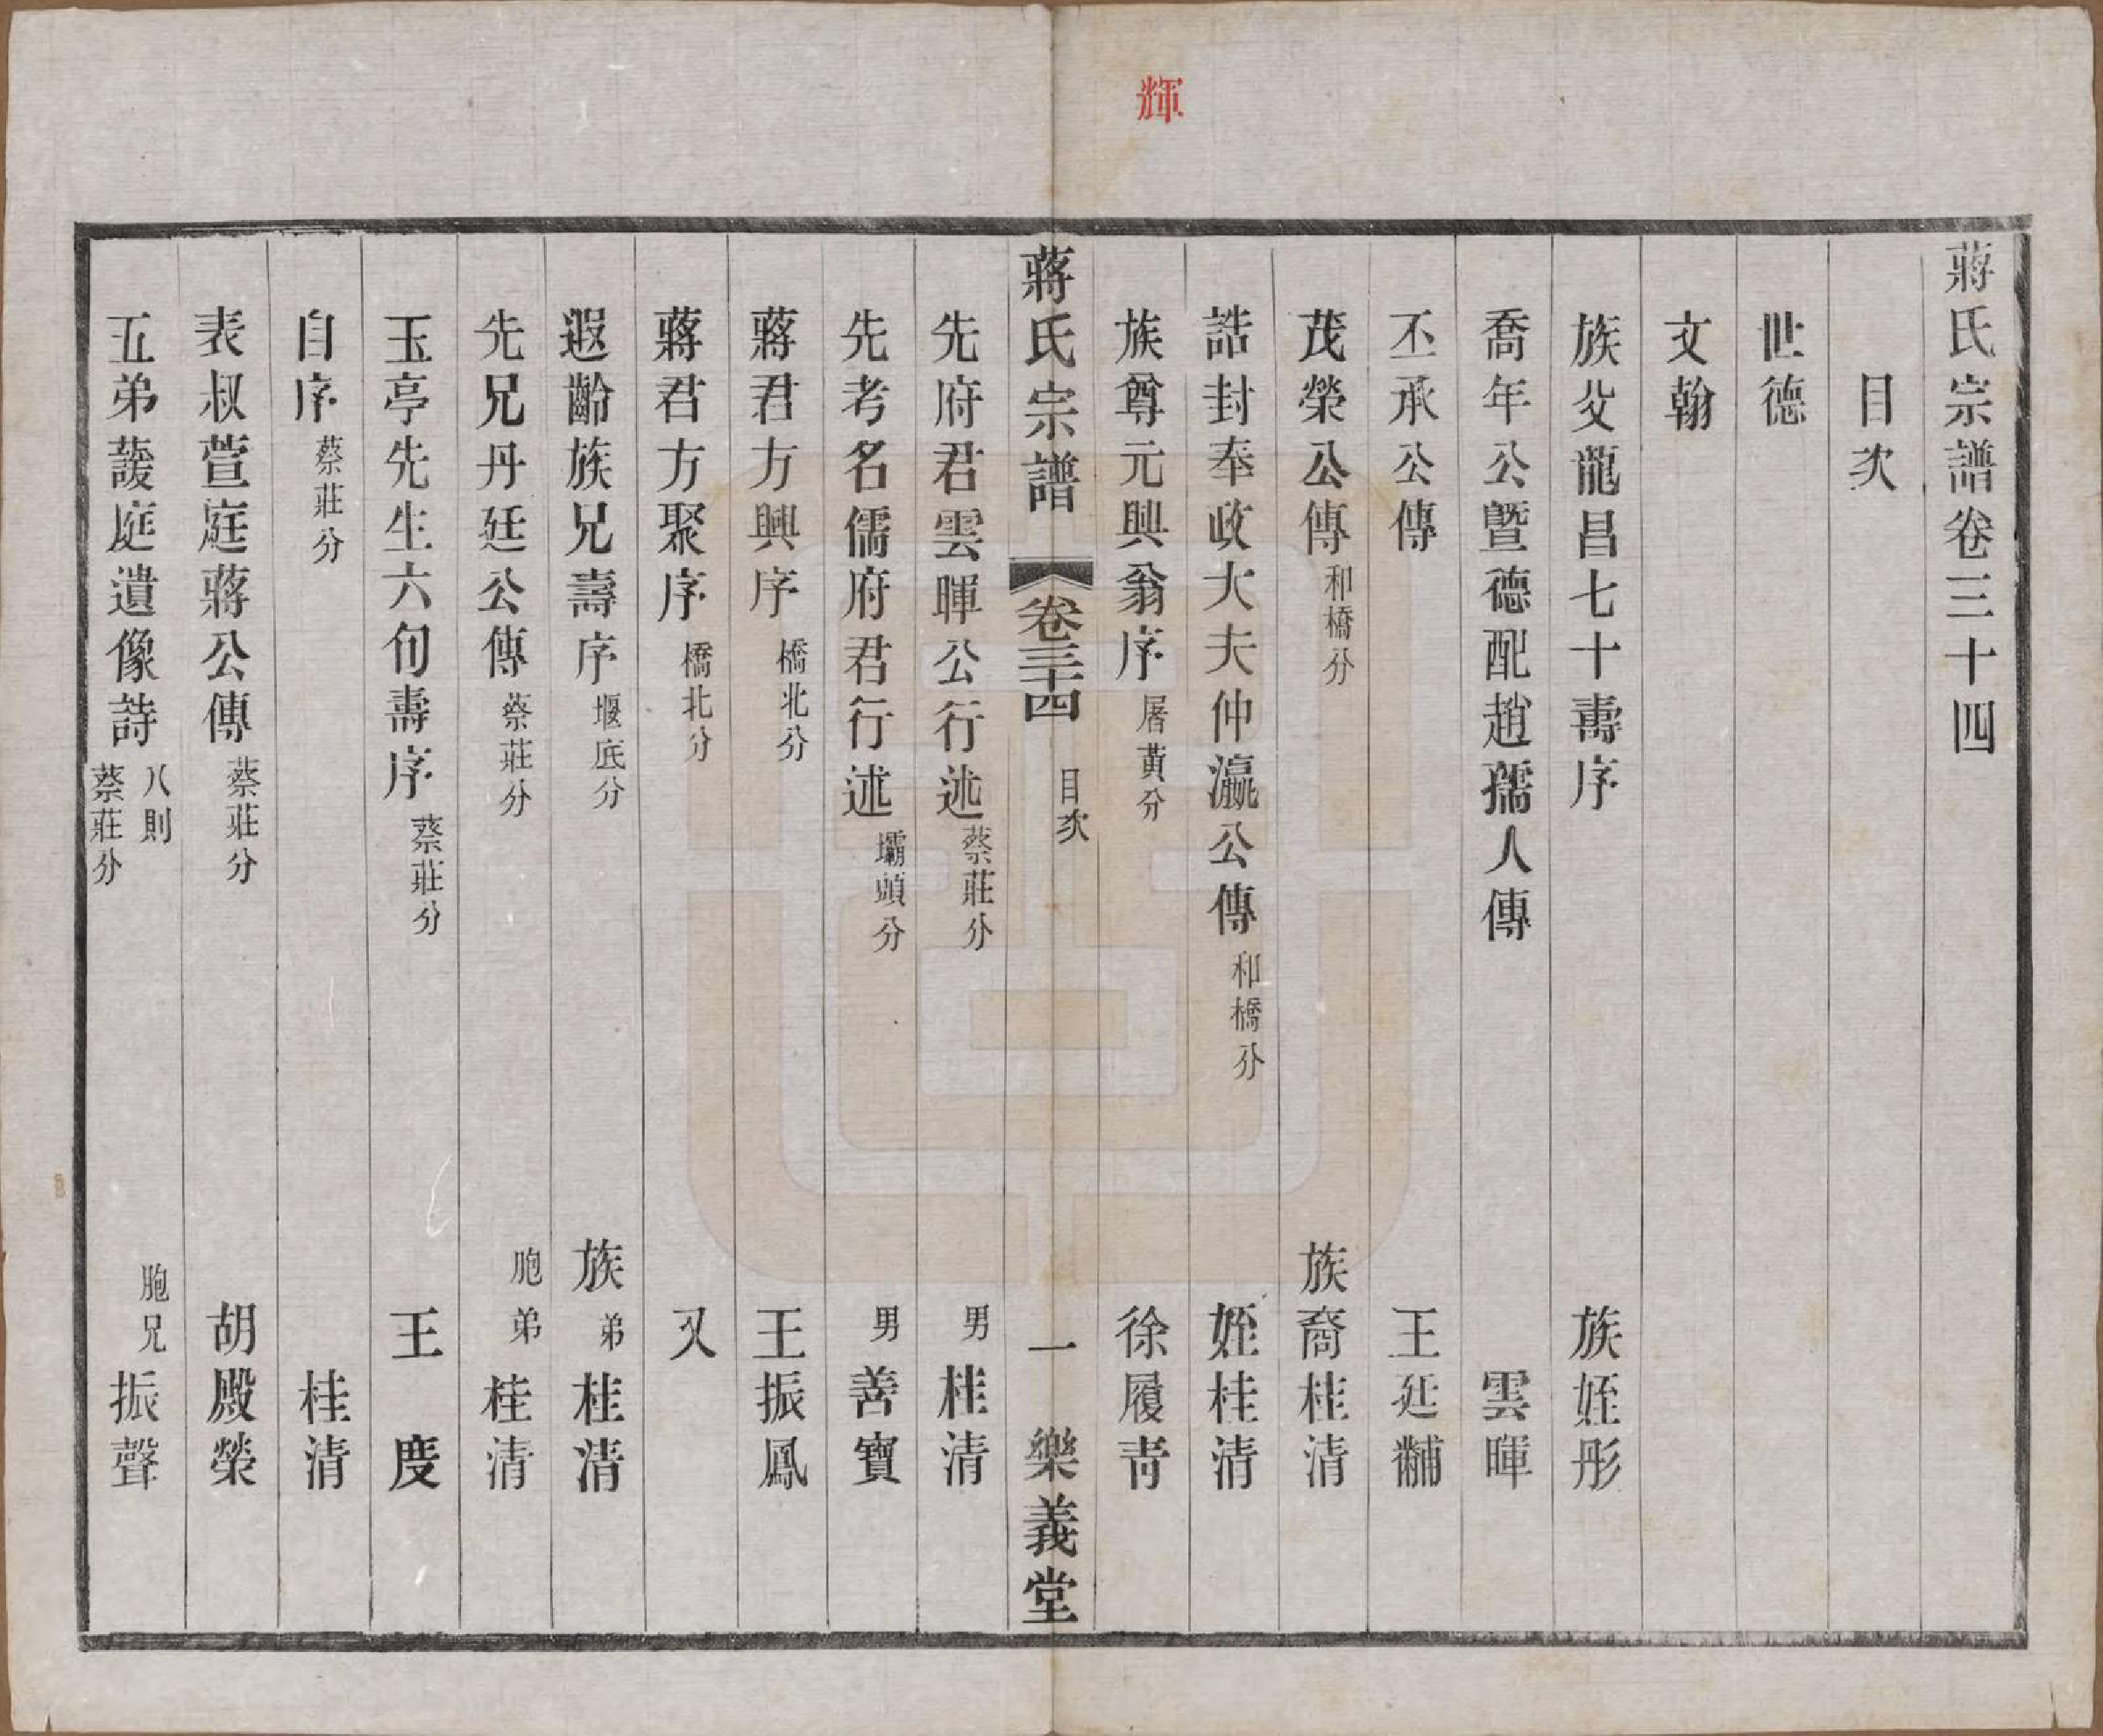 輝
蔣氏宗譜卷三十四
目次
世德
文翰
族父龍昌七十壽序 族姪彤
喬年公暨德配趙孺人傳 雲暉
丕承公傳 王廷黼
茂榮公傳 和橋分 族裔桂清
誥封奉政大夫仲瀛公傳 和橋分 姪桂清
族尊元興翁序 屠黃分 徐履青
蔣氏宗譜 卷三十四 目次 一 樂義堂
先府君雲暉公行述 蔡莊分 男桂清
先考名儒府君行述 壩頭分 男善寶
蔣君方興序 橋北分 王振鳳
蔣君方聚序 橋北分 又
遐齡族兄壽序 堰底分 族弟桂清
先兄丹廷公傳 蔡莊分 胞弟桂清
玉亭先生六旬壽序 蔡莊分 王度
自序 蔡莊分 桂清
表叔萱庭蔣公傳 蔡莊分 胡殿榮
五弟護庭遺像詩 八則 蔡莊分 胞兄振聲